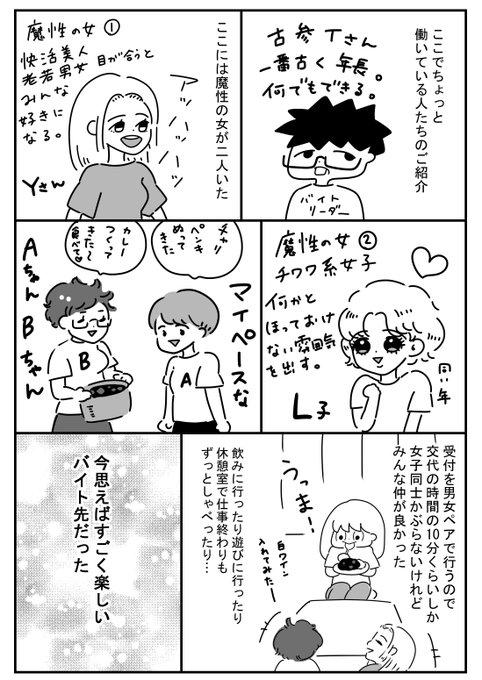 ここでちょっと
働いている人たちのご紹介
古参Tさん
一番古く年長。
何でもできる。
バイト
リーダー
ここには魔性の女が二人いた
魔性の女①
快活美人
老若男女目が合うと
みんな
好きに
なる。
アッハッハッハッ
Yさん
魔性の女②
チワワ系女子
何かと
ほっておけ
ない雰囲気
を出す。
同い年
L子
マイペースな
Aちゃん
Bちゃん
ペンキ
ぬって
きた
カレー
つくって
きた〜
食べて♡
A
B
受付を男女ペアで行うので
交代の時間の10分くらいしか
女子同士かぶらないけれど
みんな仲が良かった
うっま!
白ワイン
入れてみたー
飲みに行ったり遊びに行ったり
休憩室で仕事終わりも
ずっとしゃべったり…
今思えばすごく楽しい
バイト先だった